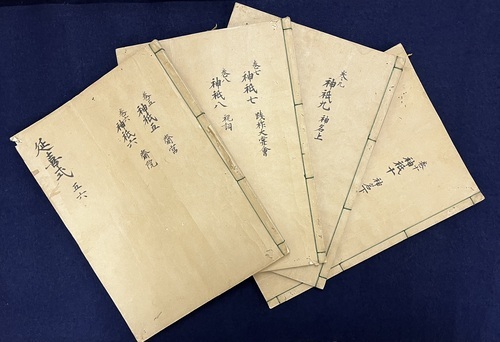 延喜式 五六
巻五 神祇五 齋宮
巻六 神祇六 齋院
巻七 神祇七 践祚大嘗會
巻八 神祇八 祝詞
巻九 神祇九 神名上
巻十 神祇十 神名下